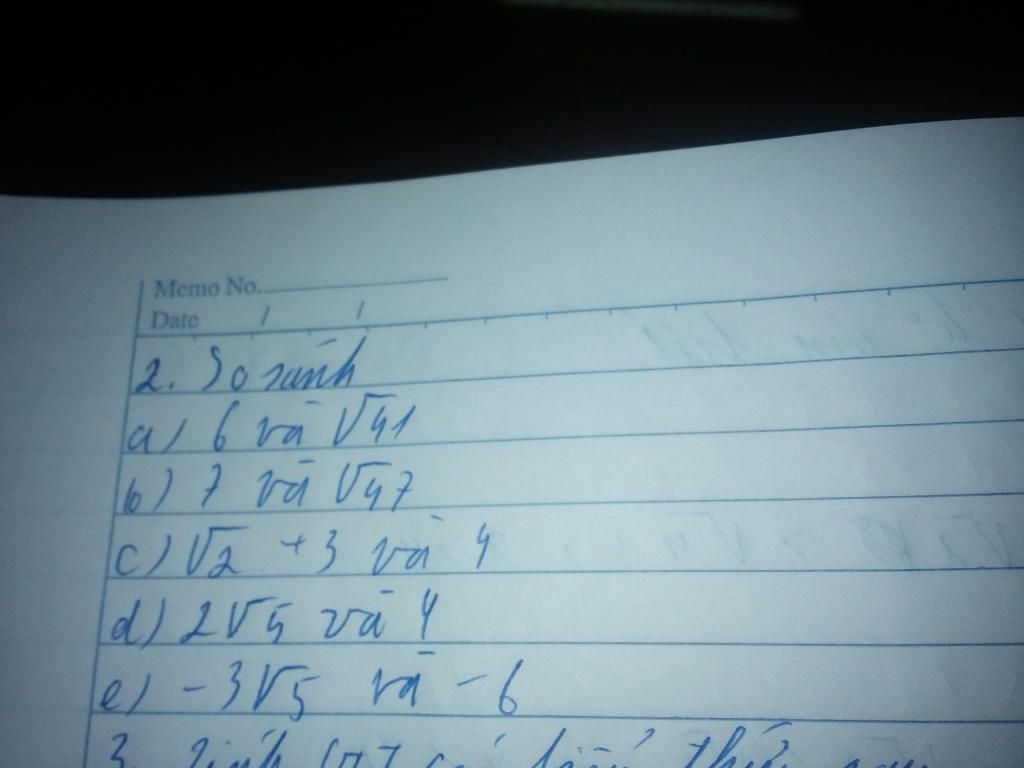 Memo No.
Date / /
2. So sánh
a) 6 và √41
b) 7 và √47
c) √2 + 3 và 4
d) 2√5 và 4
e) -3√5 và -6
3.